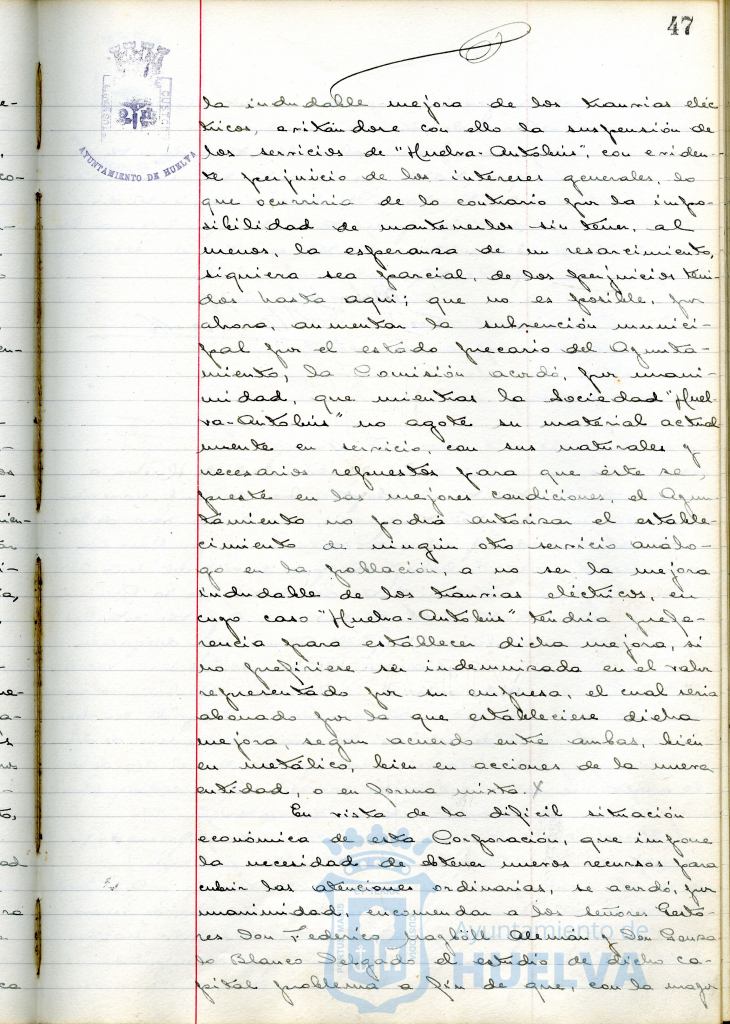 47
AYUNTAMIENTO DE HUELVA
la indudable mejora de los tranvias eléc
tricos, evitándose con ello la suspensión de
los servicios de "Huelva-Autobus", con eviden-
te perjuicio de los intereses generales, lo
que ocurriria de lo contrario por la impo-
sibilidad de mantenerlos sin tener, al
menos, la esperanza de un resarcimiento,
siquiera sea parcial, de los perjuicios teni-
dos hasta aqui; que no es posible, por
ahora, aumentar la subvención munici-
pal por el estado precario del Ayunta-
miento, la Comisión acordó, por unani-
midad, que mientras la Sociedad "Huel-
va-Autobus" no agote su material actual
mente en servicio, con sus naturales y
necesarios repuestos para que éste se
preste en las mejores condiciones, el Ayun-
tamiento no podrá autorizar el estable-
cimiento de ningún otro servicio análo-
go en la población, a no ser la mejora
indudable de los tranvias eléctricos, en
cuyo caso "Huelva-Autobus" tendria prefe-
rencia para establecer dicha mejora, si
no prefiriese ser indemnizada en el valor
representado por su empresa, el cual seria
abonado por la que estableciese dicha
mejora, segun acuerdo entre ambas, bién
en metálico, bien en acciones de la nueva
entidad, o en forma mixta.
En vista de la dificil situación
económica de esta Corporación, que impone
la necesidad de obtener nuevos recursos para
cubrir las atenciones ordinarias, se acordó, por
unanimidad, encomendar a los señores Gesto-
res Don Federico Alemán y Don Gonza-
lo Blanco Delgado el estudio de dicho ca-
pital problema a fin de que, con la mayor
Ayuntamiento de
HUELVA